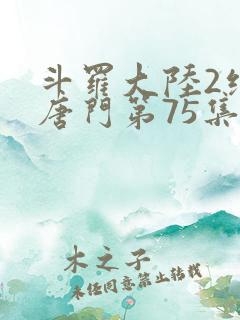 斗羅大陸2絕
唐門第75集
木之子
未经同意禁止转载